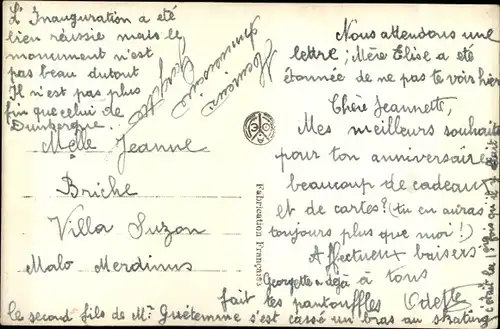 L'Inauguration a été
bien réussie mais le
monument n'est
pas beau dutout
Il n'est pas plus
fin que celui de
Dunkerque.
Heureux
Anniversaire
Melle Jeanne
Briche
Villa Suzon
Malo Merdinns
Fabrication Française
Nous attendons une
lettre ; Mère Elise a été
étonnée de ne pas te voir hier
Chère Jeannette,
Mes meilleurs souhaits
pour ton anniversaire
beaucoup de cadeaux
et de cartes ? (tu en auras
toujours plus que moi !)
Affectueux baisers
à tous
Odette
Georgette a déjà
fait tes pantouffles
le second fils de Mr Guétemme s'est cassé un bras au skating